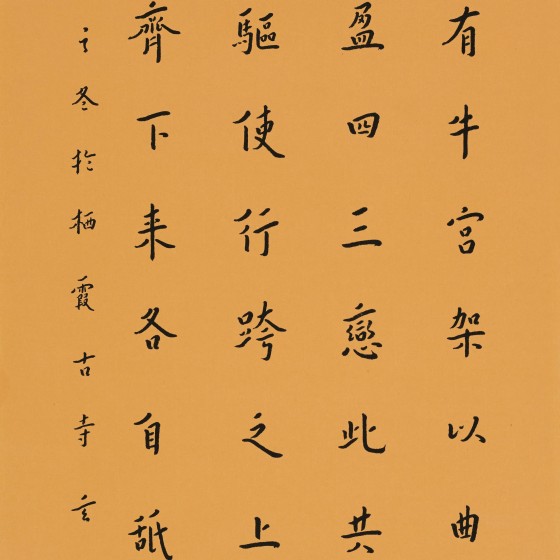 有牛宫架以曲
盈四三戀此共
驅使行跨之上
齊下来各自舐
之冬於栖霞古寺